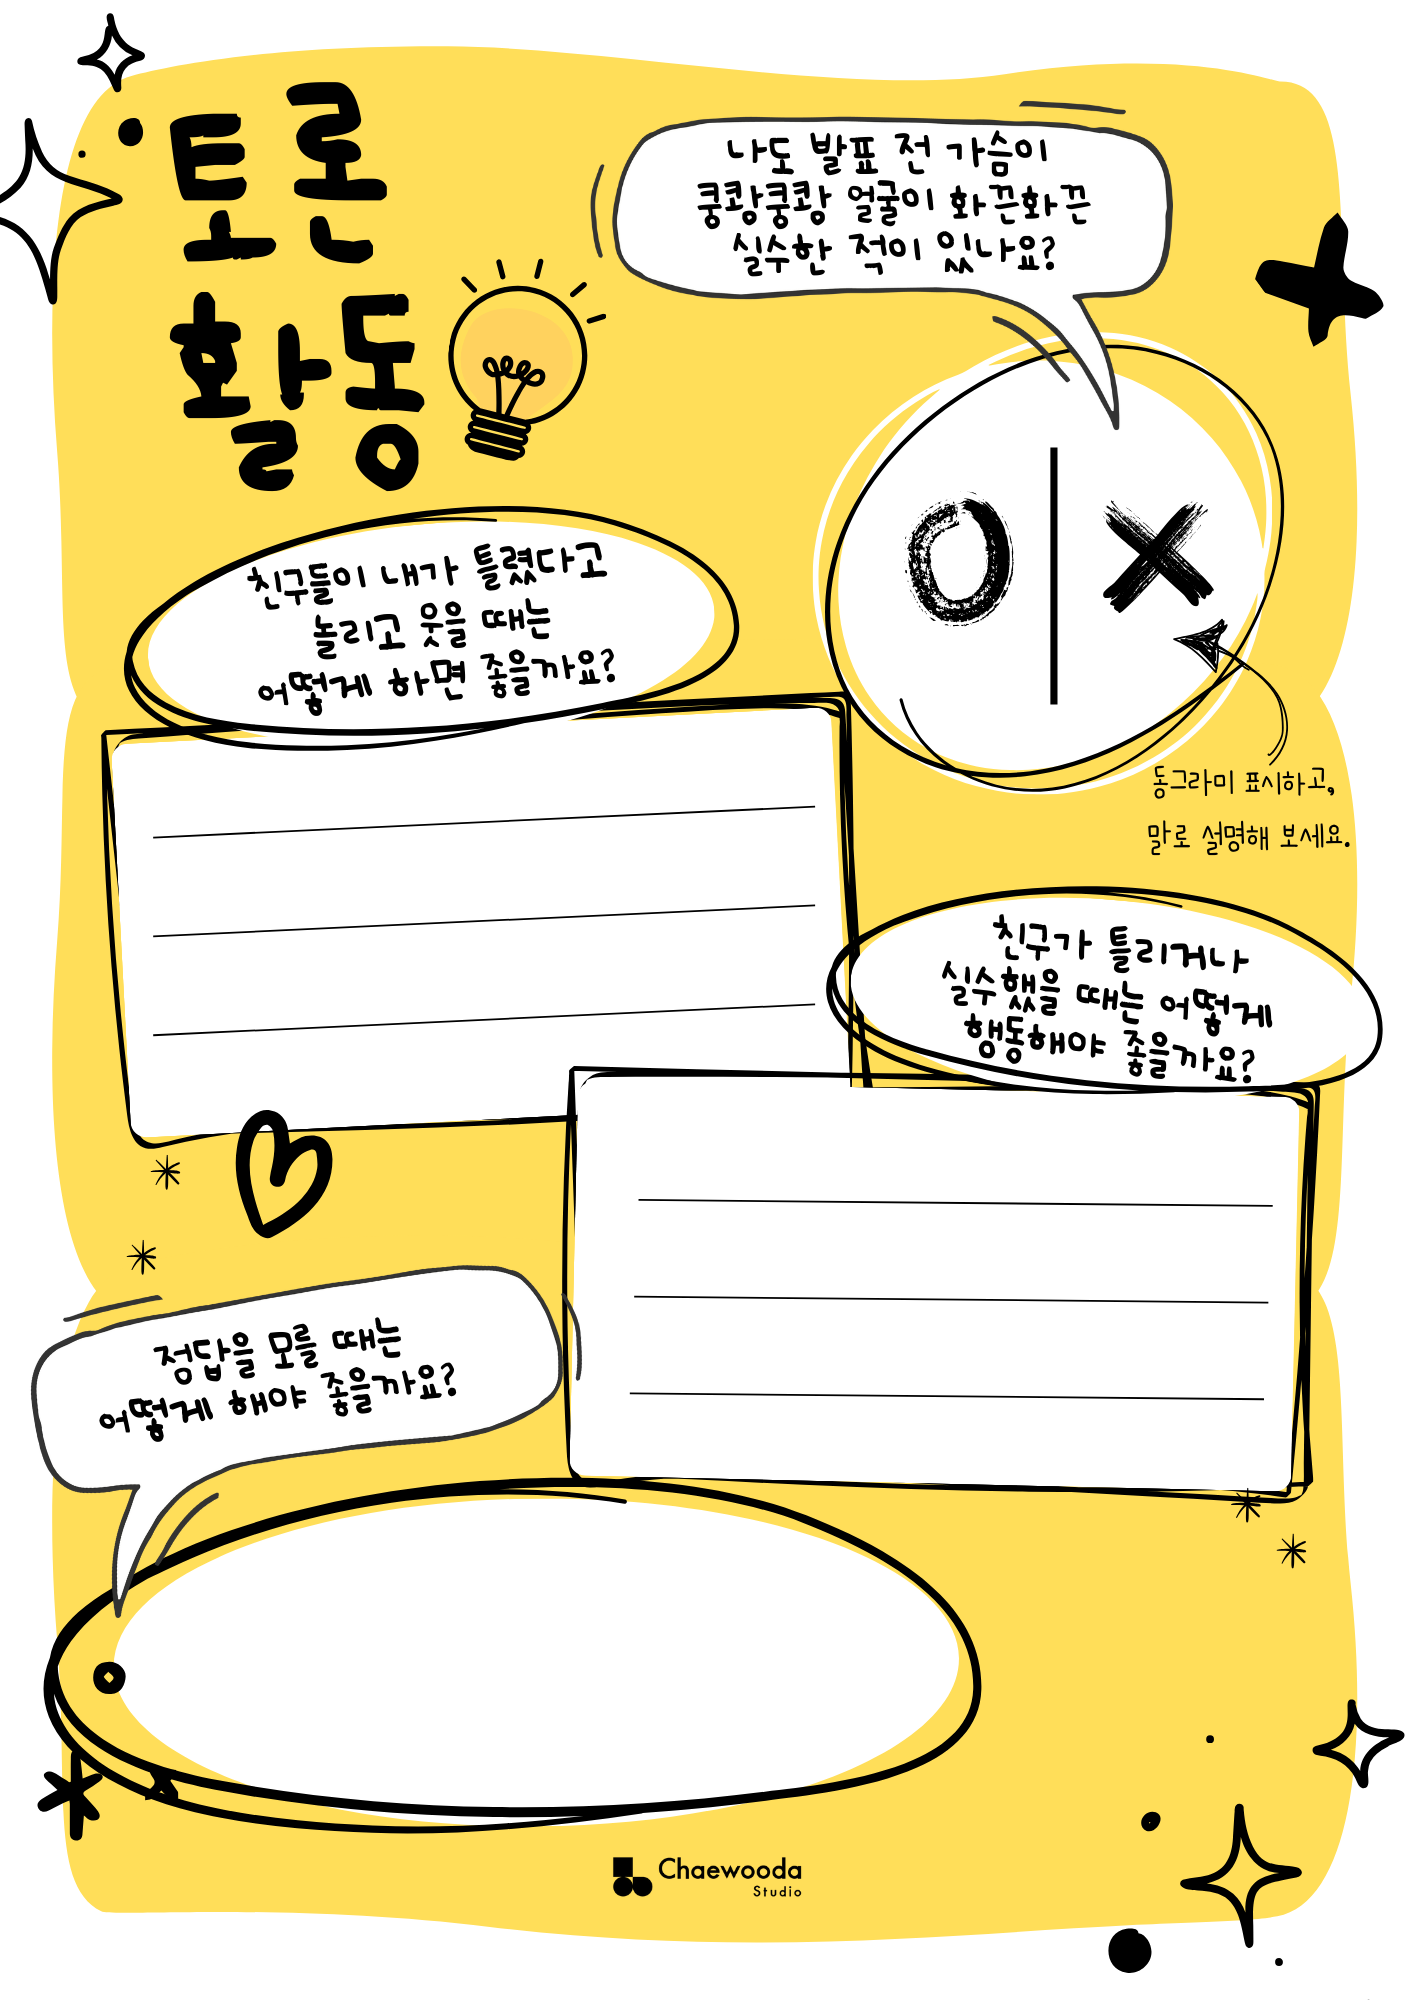 토론
활동
나도 발표 전 가슴이
쿵쾅쿵쾅 얼굴이 화끈화끈
실수한 적이 있나요?
O | X
동그라미 표시하고,
말로 설명해 보세요.
친구들이 내가 틀렸다고
놀리고 웃을 때는
어떻게 하면 좋을까요?
친구가 틀리거나
실수했을 때는 어떻게
행동해야 좋을까요?
정답을 모를 때는
어떻게 해야 좋을까요?
Chaewooda
Studio